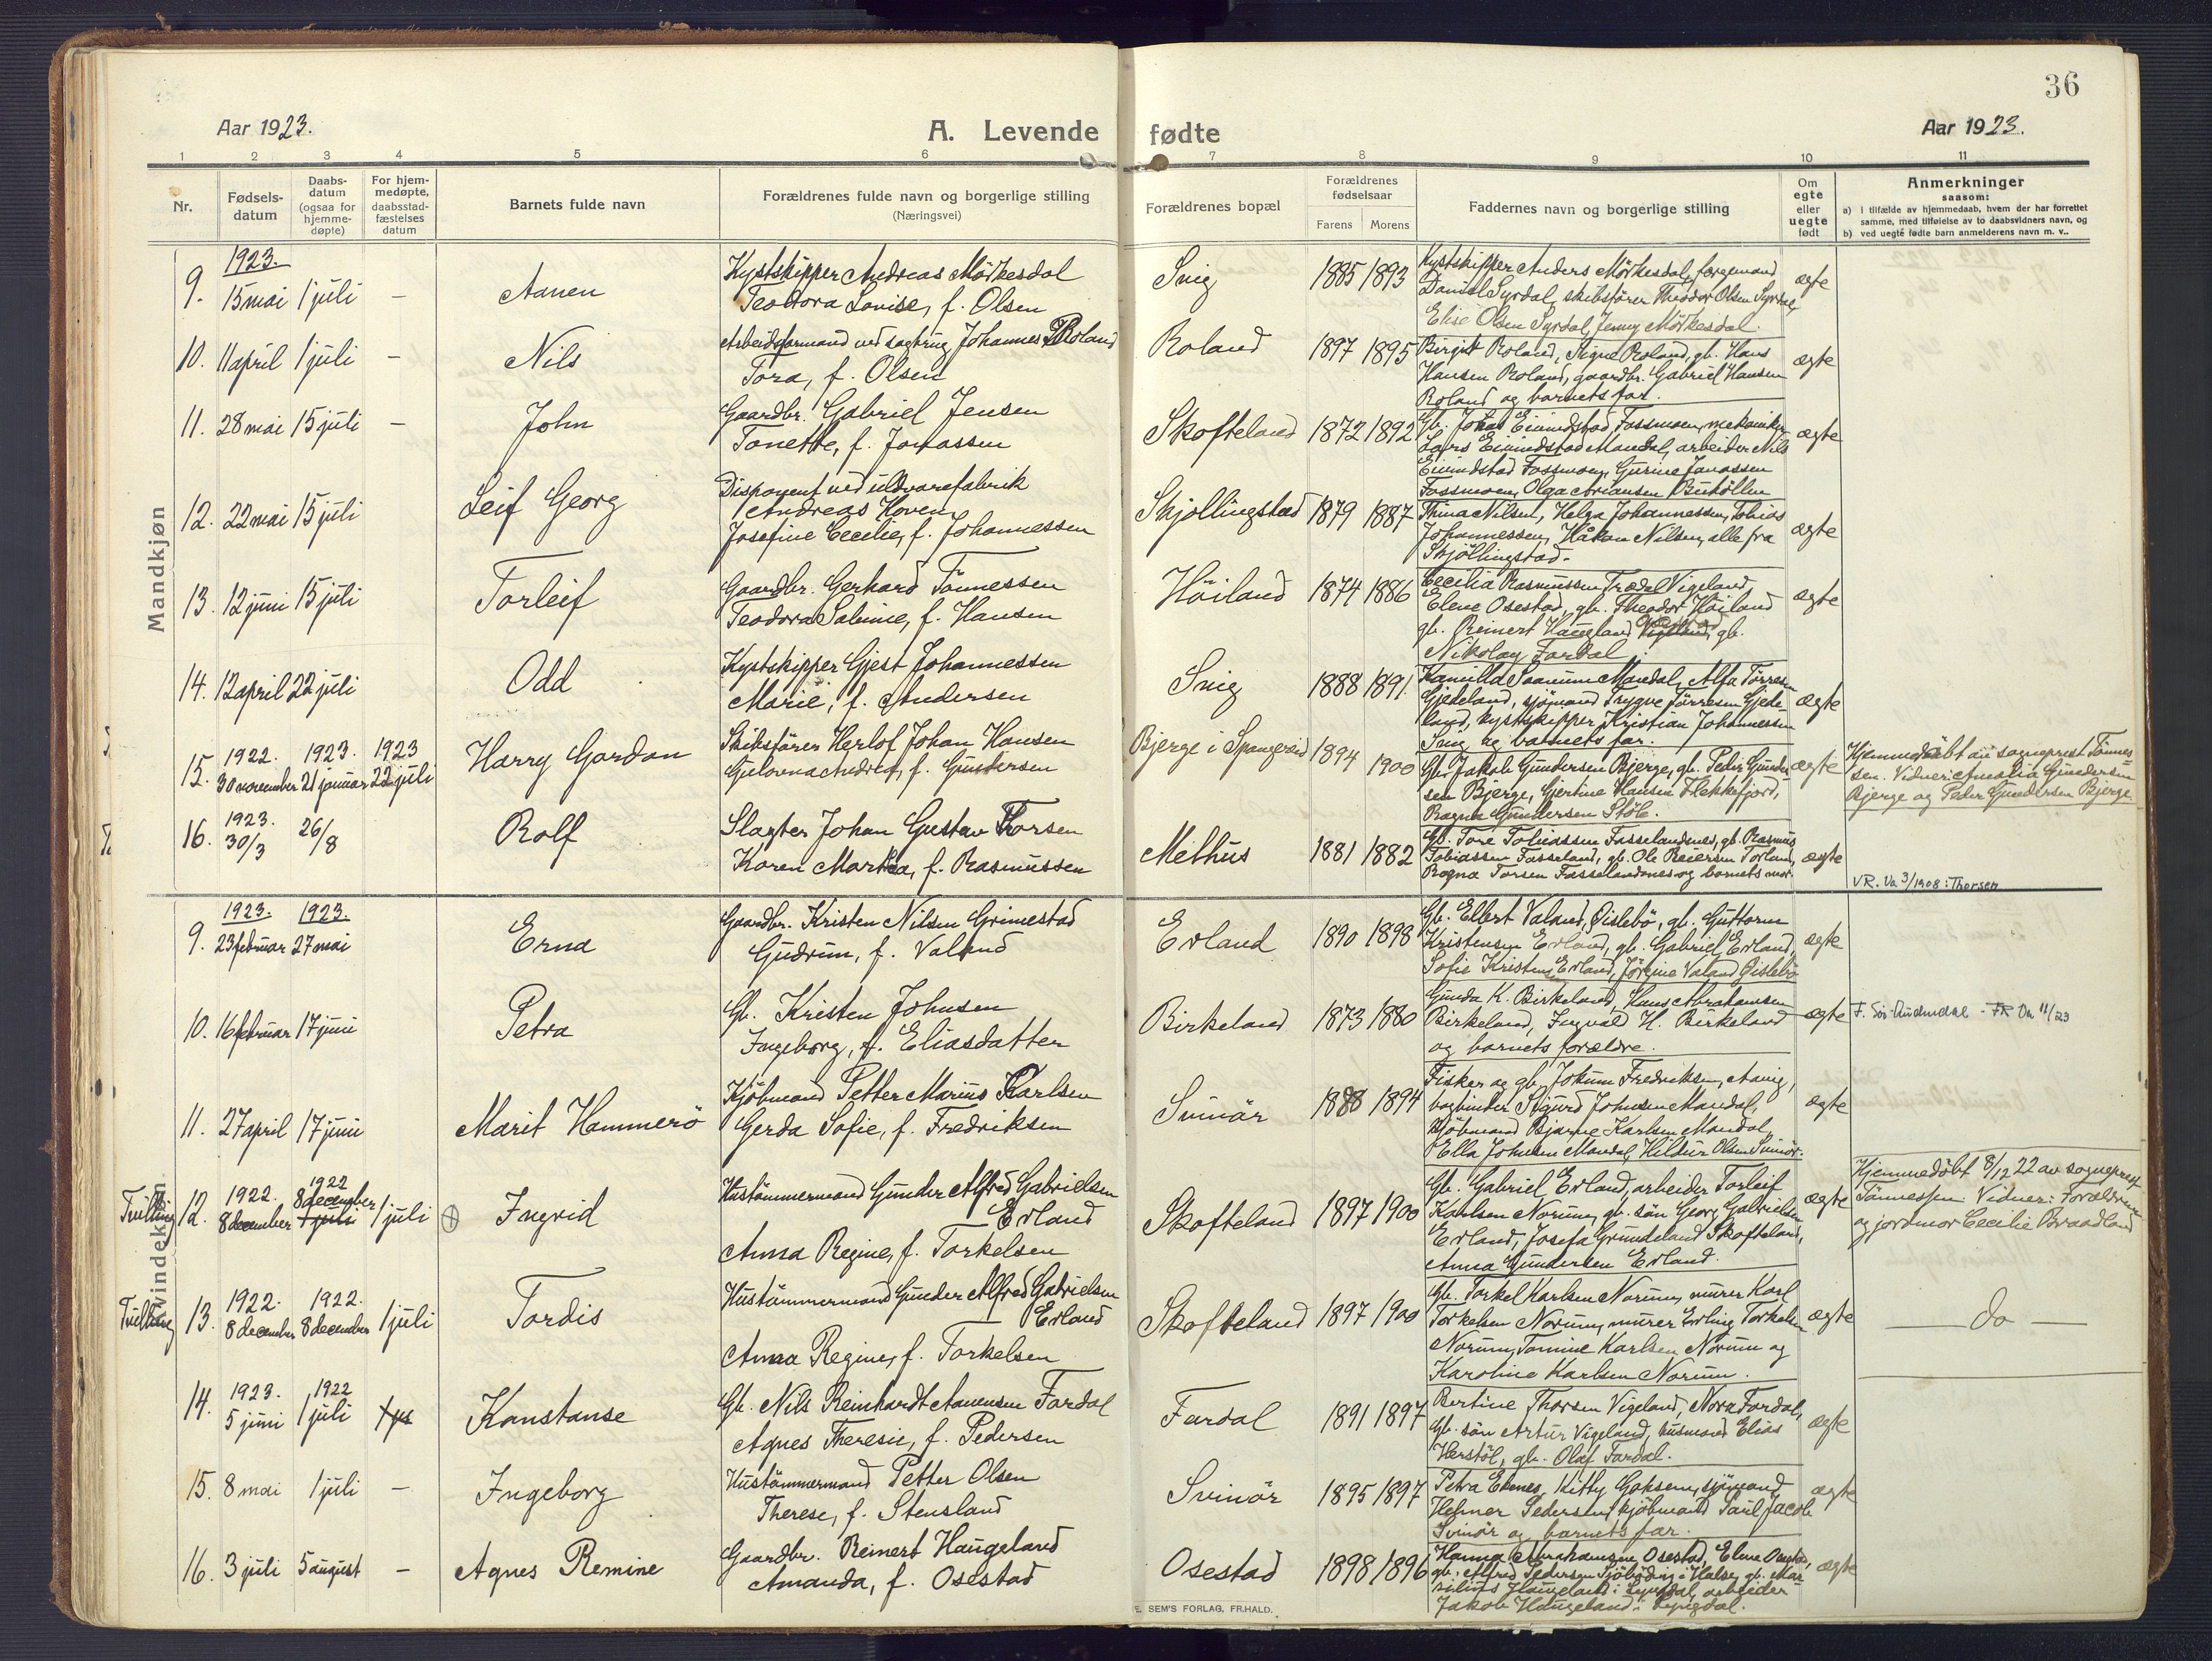 36
Aar 1923.
A. Levende fødte
Aar 1923.
1 2 3 4 5 6 7 8 9 10 11
Nr.
Fødsels-datum
Daabs-datum (ogsaa for hjemme-døpte)
For hjem-medøpte, daabsstad-fæstelses datum
Barnets fulde navn
Forældrenes fulde navn og borgerlige stilling (Næringsvei)
Forældrenes bopæl
Forældrenes fødselsaar
Farens Morens
Faddernes navn og borgerlige stilling
Om egte eller uegte født
Anmerkninger
saasom:
a) i tilfælde av hjemmedaab, hvem der har forrettet samme, med tilføielse av to daabsvidners navn, og
b) ved uegte fødte barn anmelderens navn m. v..
Mandkjøn
1923.
9. 15 mai 1 juli – Aanen
Kystskipper Andreas Mörkesdal
Teodora Lovise, f. Olsen
Snig 1885 1893
Kystskipper Anders Mörkesdal, færgemand
Daniel Syrdal, skibsfører Theodor Olsen Syrdal,
Elise Olsen Syrdal, Jenny Mörkesdal.
ægte
10. 11 april 1 juli – Nils
Arbeidsformand ved sagbrug Johannes Roland
Tora, f. Olsen
Roland 1897 1895
Birgit Roland, Signe Roland, gb. Hans
Hansen Roland, gaardbr. Gabriel Hansen
Roland og barnets far.
ægte
11. 28 mai 15 juli – John
Gaardbr. Gabriel Jensen
Tonette, f. Jonassen
Skofteland 1872 1892
Gb. Johan Eimindstad, Fossmoen, mekaniker
Lars Eimindstad Mandal, arbeider Nils
Eimindstad Fossmoen, Gurine Jonassen
Fossmoen, Olga Ariansen
ægte
12. 22 mai 15 juli Leif Georg
Disponent ved uldvarefabrik
Andreas Hoven
Josefine Cecilie, f. Johannessen
Skjøllingstad 1879 1887
Thina Nilsen, Helga Johannessen, Tobias
Johannessen, Håkon Nilsen, alle fra
Skjøllingstad.
ægte
13. 12 juni 15 juli Torleif
Gaardbr. Gerhard Tönnessen
Teodora Sabine, f. Hansen
Höiland 1874 1886
Cecilia Rasmussen Trædal Vigeland,
Elene Osestad, gb. Theodor Höiland
gb. Reinert Haugland Osestad, gb.
Nikolay Fardal
ægte
14. 12 april 22 juli Odd
Kystskipper Gjest Johannessen
Marie, f. Andersen
Snig 1888 1891.
Kamilla Saanum Mandal, Alfa Törresen
Gjedeland, sjømand Trygve Törresen Gjede-
land, kystskipper Kristian Johannessen
Snig og barnets far.
ægte
15. 1922. 30 november 1923. 21 januar 1923 22 juli Harry Gordon
Skibsfører Herlof Johan Hansen
Gulovna Andrea, f. Gundersen
Bjerge i Spangereid 1894 1900
Gb. Jakob Gundersen Bjerge, gb. Peder Gunder
sen Bjerge, Gertine Hansen Flekkefjord,
Ragna Gundersen Stöl.
ægte
Hjemmedøbt av sogneprest Tönnes-
sen. Vidner: Amalia Gundersen
Bjerge og Peder Gundersen Bjerge
16. 1923. 30/3 26/8 Rolf
Slagter Johan Gustav Torsen
Karen Marta, f. Rasmussen
Methus 1881 1882
Gb. Tore Tobiassen Fasselandsnes, gb. Rasmus
Tobiassen Fasseland, gb. Ole Reiersen
Ragna Torsen Fasselandsnes og barnets mor.
ægte
VR. Va 3/1908: Thorsen
Kvindekjøn
1923. 1923.
9. 23 februar 27 mai Erna
Gaardbr. Kristen Nilsen Grimestad
Gudrun, f. Valand
Erland 1890 1898
Gb. Ellert Valand, Øislebö, gb. Guttorm
Kristensen Erland, gb. Gabriel Erland,
Sofie Kristensen Erland, Jörgine Valand Øislebö
ægte
10. 16 februar 17 juni Petra
Gb. Kristen Johnsen
Ingeborg, f. Eliasdatter
Birkeland 1873 1880
Gunda K. Birkeland, Hans Abrahamsen
Birkeland, Ingvald H. Birkeland
og barnets forældre.
ægte
F. Sör-Audnedal - FR Da 11/23
11. 27 april 17 juni Marit Hammerö
Kjöbmand Petter Marius Karlsen
Gerda Sofie, f. Fredriksen
Svinör 1888 1894
Fisker og gb. Jokum Fredriksen, Aavig,
bogbinder Sigurd Johnsen Mandal,
Kjöbmand Bjarne Karlsen Mandal,
Ella Johnsen Mandal, Hildur Olsen Svinör.
ægte
Tvilling 12. 1922. 8 december 1922 8 december 1 juli 1 juli Ingrid
Hustömmermand Gunder Alfred Gabrielsen
Erland
Anna Regine, f. Torkelsen
Skofteland 1897 1900
Gb. Gabriel Erland, arbeider Torleif
Karlsen Norum, gb. sön Georg Gabrielsen
Erland, Josefa Grundeland Skofteland,
Anna Gundersen Erland.
ægte
Hjemmedöbt 8/12 22 av sogneprest
Tönnessen. Vidner: Forældrene
og jordmor Cecilie Braadland
Tvilling 13. 1922. 8 december 1922. 8 december 1 juli Tordis
Hustömmermand Gunder Alfred Gabrielsen
Erland
Anna Regine, f. Torkelsen
Skofteland 1897 1900
Gb. Torkel Karlsen Norum, murer Karl
Torkelsen Norum, murer Erling Torkelsen
Norum, Tomine Karlsen Norum og
Karoline Karlsen Norum.
ægte
— do —
14. 1923. 5 juni 1922 1 juli Konstanse
Gb. Nils Reinhardt Aanensen Fardal
Agnes Theresie, f. Pedersen
Fardal 1891 1897
Bertine Thorsen Vigeland, Nora Fardal,
Gb. sön Artur Vigeland, husmand Elias
Herstöl, gb. Olaf Fardal.
ægte
15. 8 mai 1 juli – Ingeborg
Hustömmermand Petter Olsen
Therese, f. Stensland
Svinör 1895 1897
Petra Ernes, Kitty Gaksem, sjömand
Helmer Pedersen, kjöbmand Paul Jacob
Svinör og barnets far.
ægte
16. 3 juli 5 august – Agnes Remine
Gaardbr. Reinert Haugeland
Amanda, f. Osestad
Osestad 1898 1896
Hanna Abrahamsen Osestad, Elene Osestad,
gb. Alfred Pedersen i Halse, gb. Mar-
Haugeland i Lyngdal, arbeider
Jakob Haugeland i Lyngdal.
ægte
E. SEM'S FORLAG, FR.HALD.